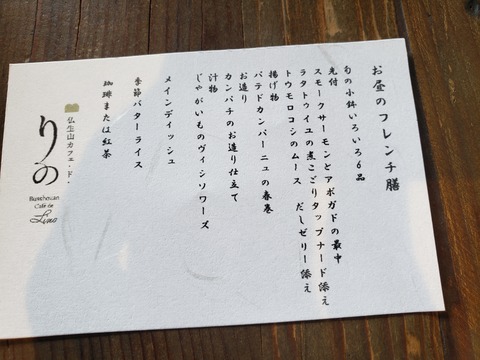 お昼のフレンチ膳
旬の小鉢いろいろ6品
先付
スモークサーモンとアボガドの最中
ラタトゥイユの煮こごりタップナード添え
トウモロコシのムース だしゼリー添え
揚げ物
パテドカンパーニュの春巻
お造り
カンパチのお造り仕立て
汁物
じゃがいものヴィシソワーズ
メインディッシュ
季節バターライス
珈琲または紅茶
仏生山カフェ・ド・
りの
Busshouzan
Café de
Lino